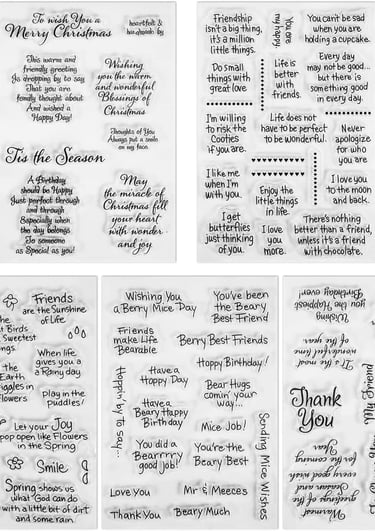 To wish You a
Merry Christmas
heartfelt &
handmade by
This warm and
friendly greeting
Is dropping by to say
That you are
fondly thought about
And wished a
Happy Day!
Wishing
you the warm
and wonderful
Blessings of
Christmas
Thoughts of You
Always put a smile
on my face
'Tis the Season
A Birthday
should be Happy
Just perfect through
and through
Especially when
the day belongs
To someone
as Special as you!
May
the miracle of
Christmas fill
your heart
with wonder
and joy
Friendship
isn't a big thing,
it's a million
little things.
You are
my happy.
You can't be sad
when you are
holding a cupcake.
Do small
things with
great love
Life is
better
with
friends.
Every day
may not be good...
but there is
something good
in every day.
I'm willing
to risk the
Cooties
if you are.
Life does not
have to be perfect
to be wonderful.
Never
apologize
for who
you are.
I like me
when I'm
with you.
Enjoy the
little things
in life.
I love you
to the moon
and back.
I get
butterflies
just thinking
of you.
I love
you
more.
There's nothing
better than a
friend, unless
it's a friend
with chocolate.
Friends
are the Sunshine
of Life
Birds
Sweetest
ngs.
When life
gives you a
Rainy day
the
Earth
iggles in
Flowers
Play in the
puddles!
Let your Joy
pop open like Flowers
in the Spring
Smile
Spring shows us
what God can do
with a little bit of dirt
and some rain.
Wishing You
a Berry Mice Day
You've been
the Beary
Best Friend
Friends
make Life
Bearable
Berry Best Friends
Happy Birthday!
Hoppin' by to say...
Have a
Hoppy Day
Bear Hugs
comin' your
way...
Have a
Beary Happy
Birthday
Mice Job!
Sending Mice Wishes
You did a
Bearrrry
good job!
You're the
Beary Best
Love You
Mr & Meeces
Thank You
Beary Much
Wishing
you the Happiest
Birthday ever!
It's the most
wonderful time
of the year
Thank
You
Warmest
greetings of the
Season and
every good wish
for the coming
Year